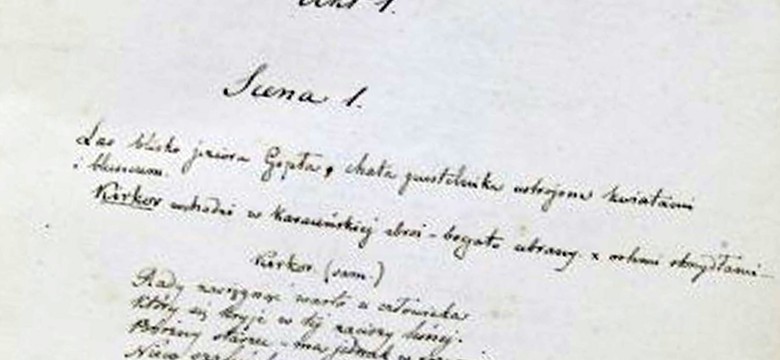 Akt 1.
Scena 1.
Las blisko jeziora Gopła, chata pustelnika ustrojona kwiatami
i bluszczem.
Kirkor wchodzi w karaceńskiej zbroi - bogato ubrany z orlemi skrzydłami
Kirkor (sam.)
Rady zasięgnąć warto u człowieka
Który się kryje w tej zaciszy leśnej.
Pobożny starzec - ma jednak w
Nieco